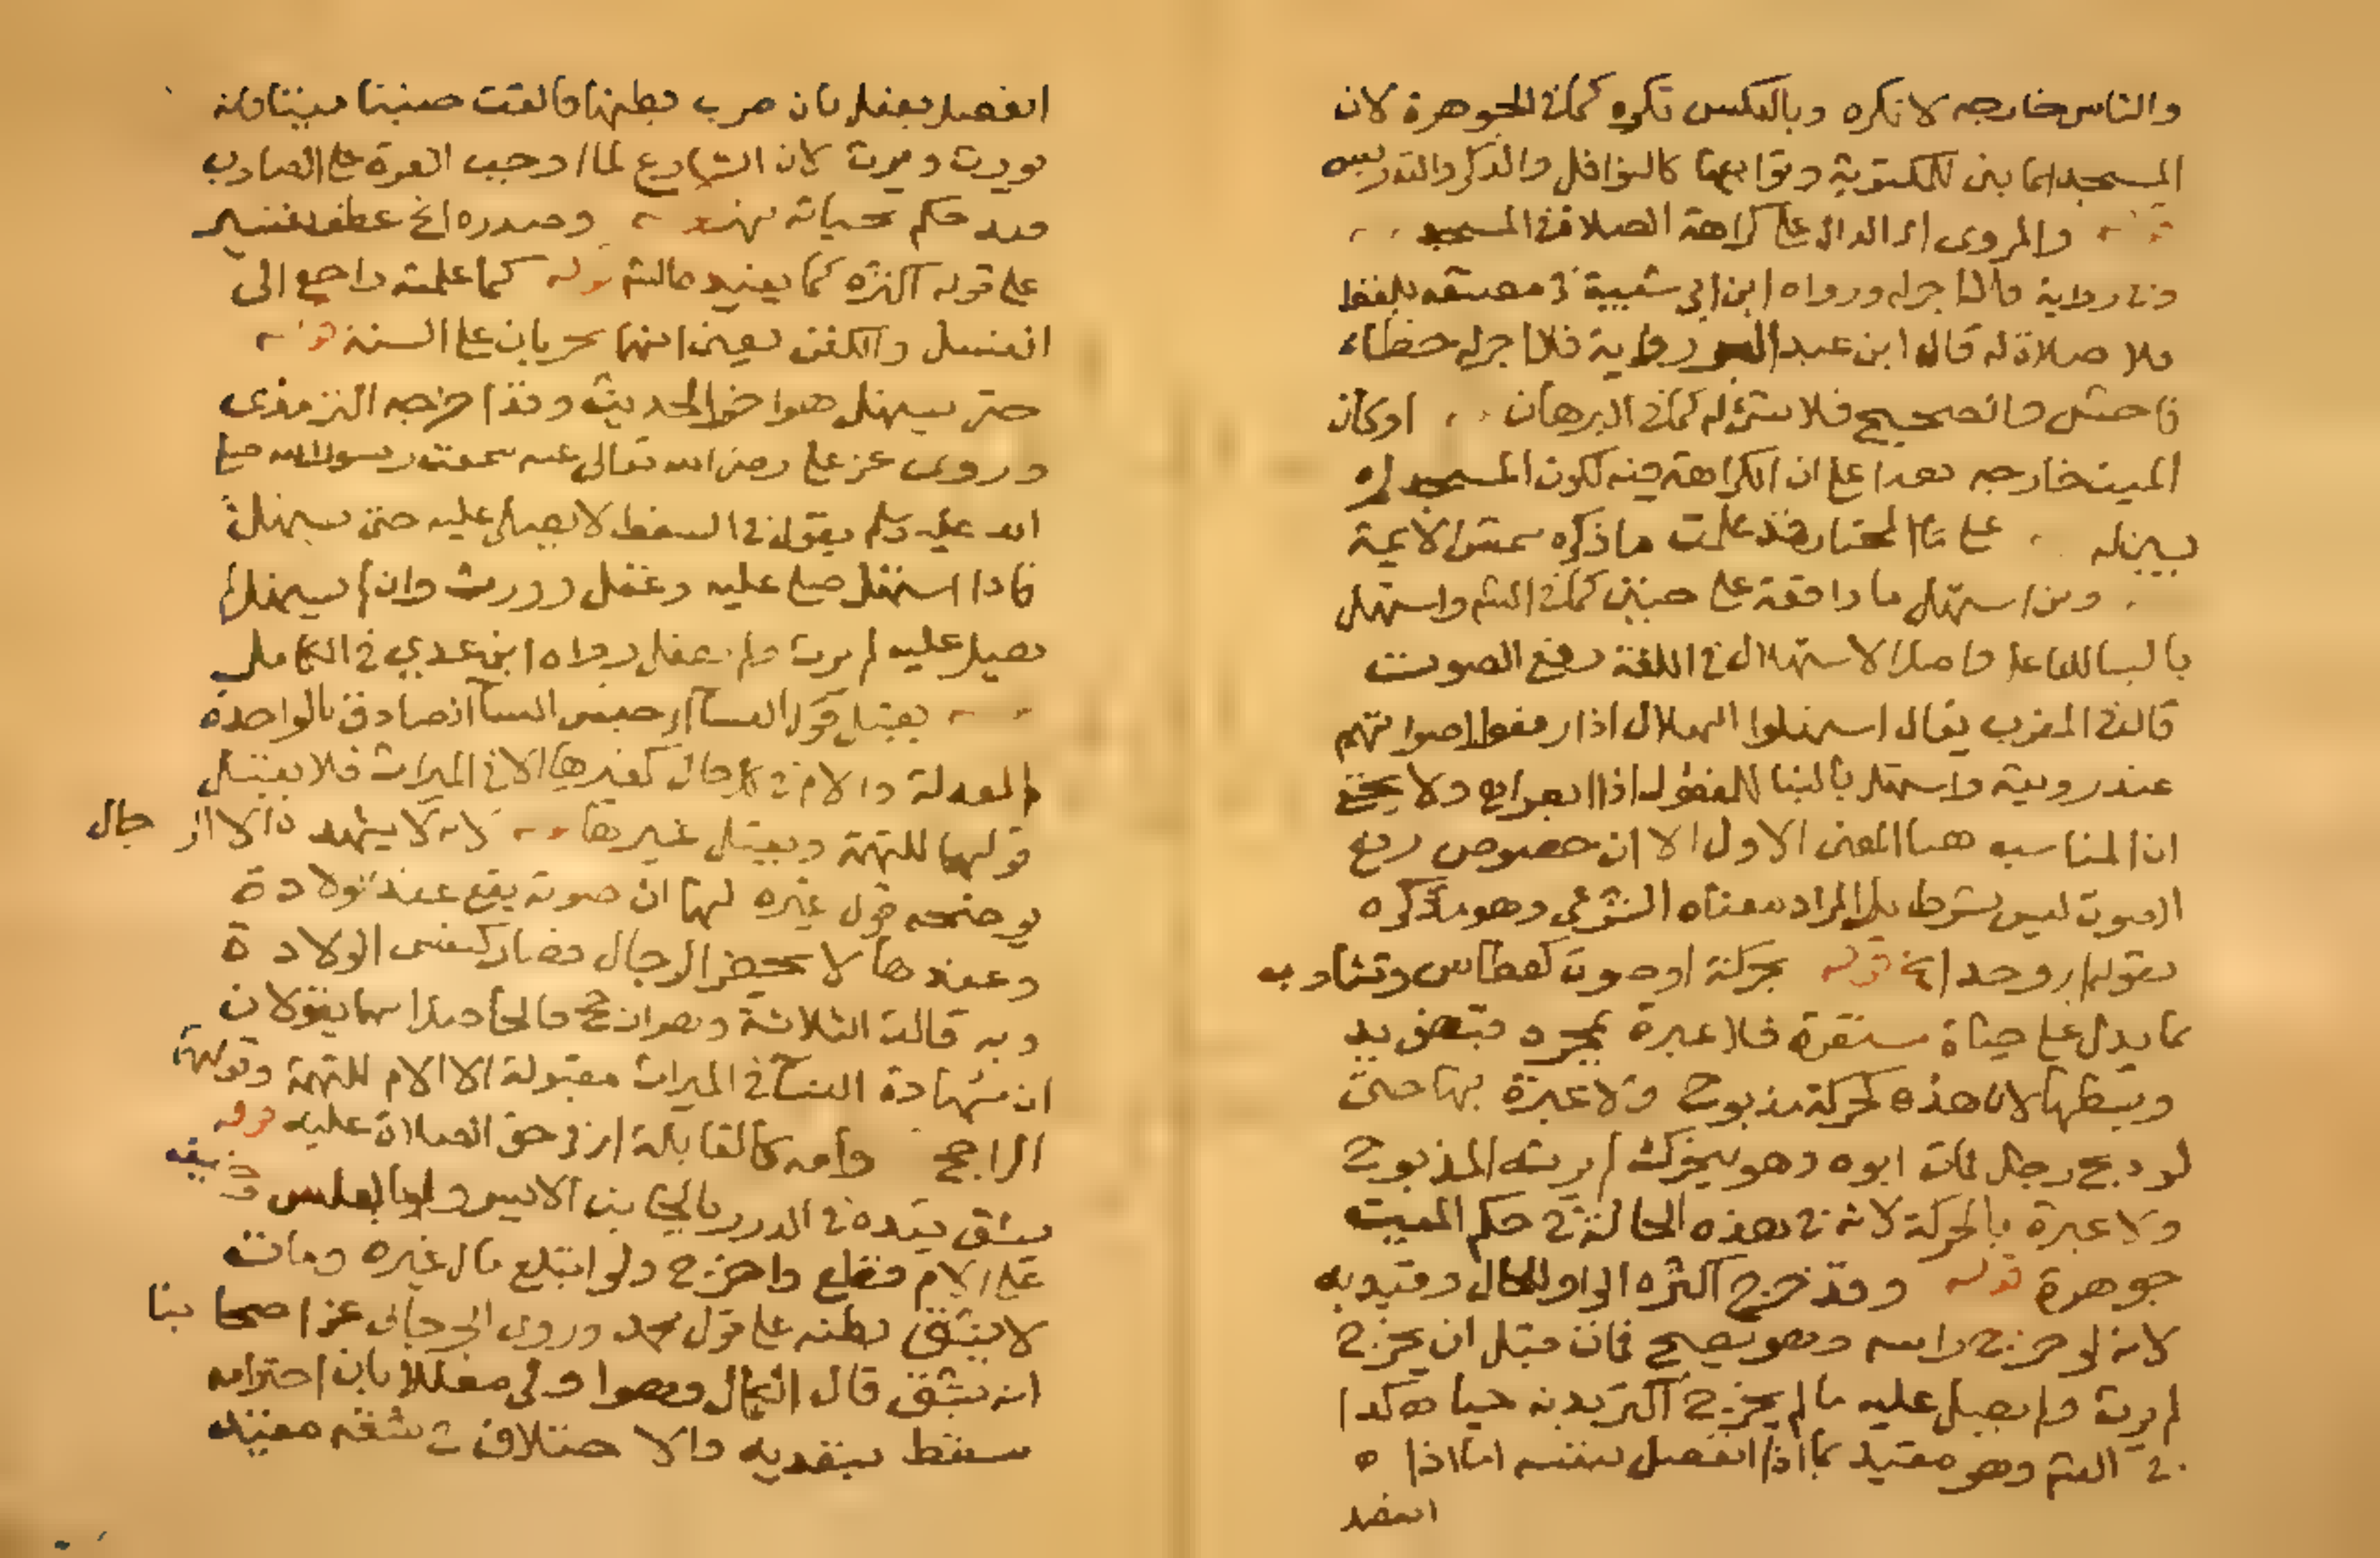 والناس خارجه لا تكره وبالعكس تكره كما في الجوهرة لان
المسجد انما بنى للمكتوبة وتوابعها كالنوافل والذكر والتدريس
والمروى اى الدال على كراهة الصلاة في المسجد
وفي رواية فلا اجر له ورواه ابن ابى شيبة في مصنفه بلفظ
فلا صلاة له قال ابن عبد البر رواية فلا اجر له خطاء
فاحش والصحيح فلا شئ له كما في البرهان او كان
الميت خارجه هذا على ان الكراهة فيه لكون المسجد لم
يبن له على المختار قد علمت ما ذكره شمس الايمة
ومن استهل ما واقعة على جنين كما في الشم واستهل
بالبنا للفاعل واصل الاستهلال في اللغة رفع الصوت
قال في المغرب يقال استهلوا الهلال اذا رفعوا اصواتهم
عند رويته واستهل بالبنا للمفعول اذا ابصر اه ولا يخفى
ان المناسب هنا المعنى الاول الا ان خصوص رفع
الصوت ليس بشرط بل المراد معناه الشرعي وهو ما ذكره
بقوله اى وجد الخ قوله بحركة او صوت كعطاس وتثاوب
مما يدل على حياة مستقرة فلا عبرة بمجرد قبض يد
وبسطها لان هذه كحركة مذبوح ولا عبرة بها حتى
لو ذبح رجل فمات ابوه وهو يتحرك لم يرثه المذبوح
ولا عبرة بالحركة لانه في هذه الحالة في حكم الميت
جوهرة قوله وقد خرج اكثره الواو للحال وقيد به
لانه لو خرج راسه وهو يصيح فمات قبل ان يخرج
لم يرث ولم يصل عليه ما لم يخرج اكثر بدنه حيا هكذا
في الشم وهو مقيد بما اذا انفصل بنفسه اما اذا ه
انفصل
انفصل بفعل بان ضرب بطنها فالقت جنينا ميتا فانه
يورث ويرث لان الشارع لما اوجب الغرة على الضارب
فقد حكم بحياته نهر وصدره الخ عطف تفسير
على قوله اكثره كما يفيده مالشم قوله كما علمت راجع الى
الغسل والكفن يعنى انهما يجريان على السنة قوله
حتى يستهل هو اخر الحديث وقد اخرجه الترمذى
وروى عن على رضى الله تعالى عنه سمعت رسول الله صلى
الله عليه وسلم يقول في السقط لا يصلى عليه حتى يستهل
فاذا استهل صلى عليه وعقل وورث وان لم يستهل لم
يصل عليه ولم يرث ولم يعقل رواه ابن عدي في الكامل
يقبل قول النسآ اى جنس النسآ الصادق بالواحدة
العدلة والام في الرجال كغيرها الا في الميراث فلا يقبل
قولها للتهمة ويقبل غيرها لانه لا يشهد ه الا الرجال
يوضحه قول غيره لهما ان صوته يقع عند الولادة
وعندها لا يحضر الرجال فصار كنفس الولادة
وبه قالت الثلاثة وهو ارجح فالحاصل انهما يقولان
ان شهادة النسآ في الميراث مقبولة الا الام للتهمة وقولهما
الراجح وامه كالقابلة اى في حق الصلاة عليه قوله
يشق قيده في الدرر بالجانب الايسر ولو بالعكس وخيف
على الام قطع واخرج ولو ابتلع مال غيره ومات
لا يشق بطنه على قول محمد وروى الجرجانى عن اصحابنا
انه يشق قال الكمال وهو اولى معللا بان احترامه
سقط بتعديه والاختلاف في شقه مقيد